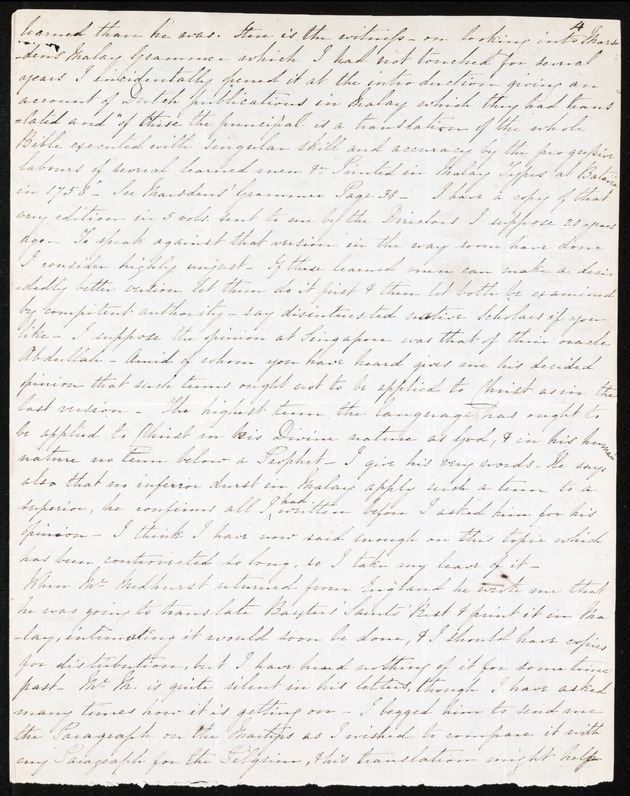 4
learned than he was. Here is the witness - on looking into Mars
-dens Malay Grammer which I had not touched for several
years I incidentally opened it at the introduction giving an
account of Dutch publications in Malay which they had trans
-lated and "of these the principal is a translation of the whole
Bible executed with singular skill and accuracy by the progressive
labours of several learned men & Printed in Malay Types at Batavia
in 1758" - See Marsdens' Grammer Page 38 - I have a copy of that
very edition in 5 vols. sent to me by the Directors I suppose 20 years
ago - To speak against that version in the way some have done
I consider highly unjust - If these learned men can make a deci
dedly better version let them do it first & then let both be examined
by competent authority - say disinterested native scholars if you
like - I suppose the opinion at Singapore was that of their oracle
Abdullah - Amid of whom you have heard gives me his decided
opinion that such terms ought not to be applied to Christ as in the
last version - The highest term the language has ought to
be applied to Christ in his Divine nature as God, & in his human
nature no term below a Prophet - I give his very words - He says
also that no inferior durst in Malay apply such a term to a
superior, he confirms all I had written before I asked him for his
opinion - I think I have now said enough on this topic which
has been controverted so long, so I take my leave of it -
When Mr Medhurst returned from England he wrote me that
he was going to translate Baxters Saints Rest & print it in Ma
lay, intimating it would soon be done, & I should have copies
for distribution, but I have heard nothing of it for some time
past - Mr M. is quite silent in his letters, though I have asked
many times how it is getting on - I begged him to send me
the Paragraph on the Martyrs as I wished to compare it with
my Paragraph for the Pilgrim, & his translation might help